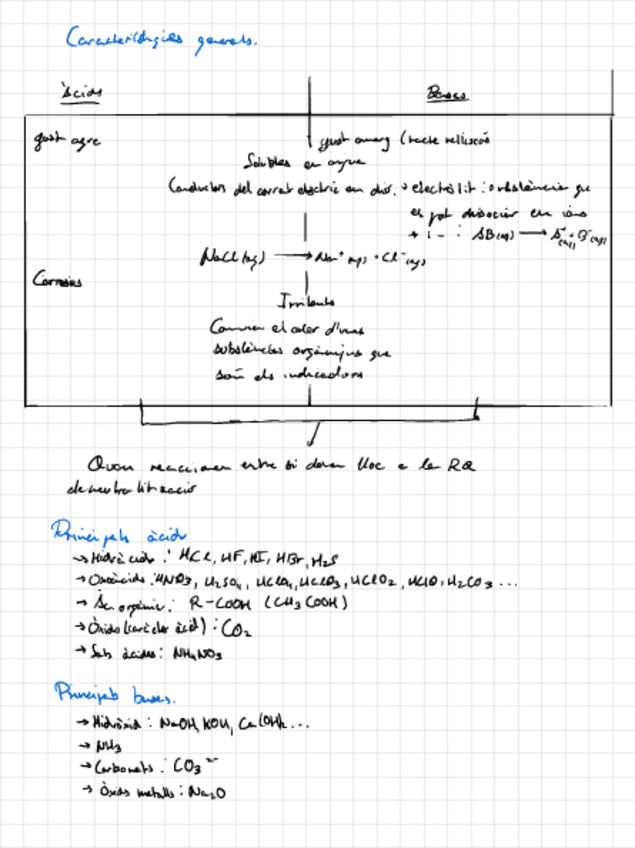 Característiques generals.
Àcids
Bases
gust agre
gust amarg (tacte relliscós
Solubles en aigua
Conductors del corrent elèctric en disr. → electròlit : substància que
es pot dissociar en ions
+ i - : AB(aq) → A⁺(aq) + B⁻(aq)
NaCl(aq) → Na⁺(aq) + Cl⁻(aq)
Corrosius
Irritants
Canvien el color d'unes
substàncies orgàniques que
són els indicadors
Quan reaccionen entre si donen lloc a la RQ
de neutralització
Principals àcids
→ Hidràcids : HCl, HF, HI, HBr, H₂S
→ Oxoàcids : HNO₃, H₂SO₄, HClO₄, HClO₃, HClO₂, HClO, H₂CO₃ ...
→ Àc. orgànic : R-COOH (CH₃COOH)
→ Òxids (caràcter àcid) : CO₂
→ Sals àcides : NH₄NO₃
Principals bases.
→ Hidròxid : NaOH, KOH, Ca(OH)₂ ...
→ NH₃
→ Carbonats : CO₃²⁻
→ Òxids metàl·ls : Na₂O